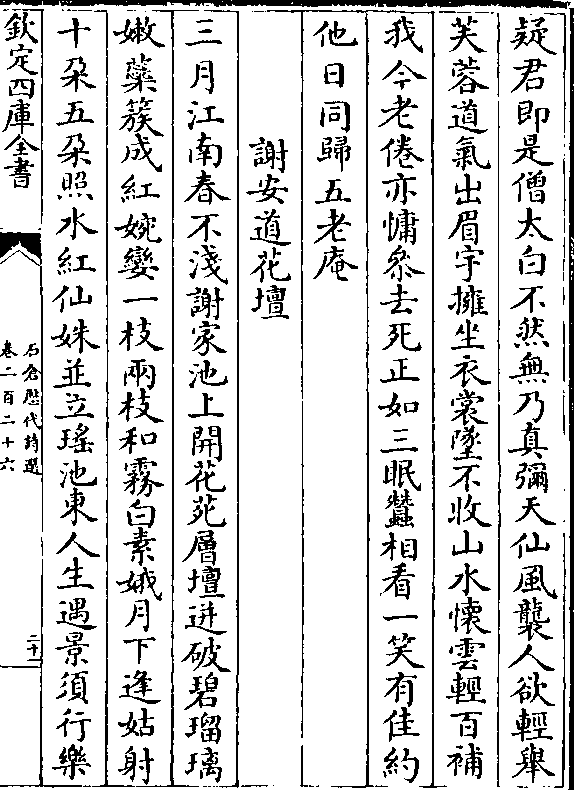 疑君即是僧太白不然無乃真彌天仙風襲人欲輕舉
芙蓉道氣出眉宇擁坐衣裳墜不收山水懷雲輕百補
我今老倦亦慵叅去死正如三眠蠶相看一笑有佳約
他日同歸五老庵
謝安道花壇
三月江南春不淺謝家池上開花苑層壇迸破碧瑠璃
嫩蘂簇成紅婉孌一枝兩枝和霧白素娥月下逢姑射
十朶五朶照水紅仙姝並立瑤池東人生遇景須行樂
欽定四庫全書
石倉歷代詩選
卷二百二十六
二十一